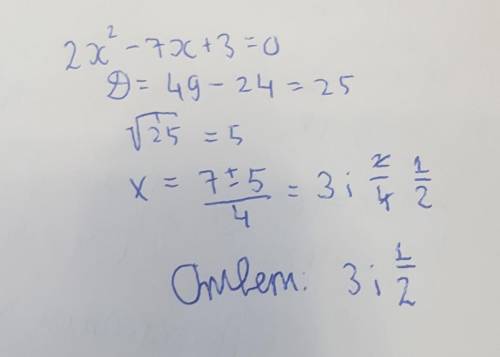 2x² - 7x + 3 = 0
D = 49 - 24 = 25
√25 = 5
x = (7 ± 5)/4 = 3; 2/4 1/2
Ответ: 3; 1/2